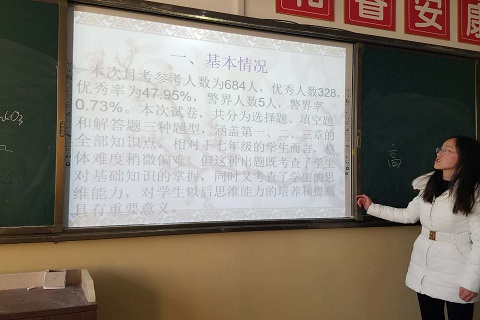 和 春 安 康
一、基本情况
本次月考参考人数为684人，优秀人数328，
优秀率为47.95%，警界人数5人，警界率
0.73%。本次试卷，共分为选择题、填空题
和解答题三种题型，涵盖第一、二、三章的
全部知识点，相对于七年级的学生而言，整
体难度稍微偏难，但这种出题既考查了学生
对基础知识的掌握，同时又考查了学生的思
维能力，对学生以后思维能力的培养和提高
具有重要意义。
高